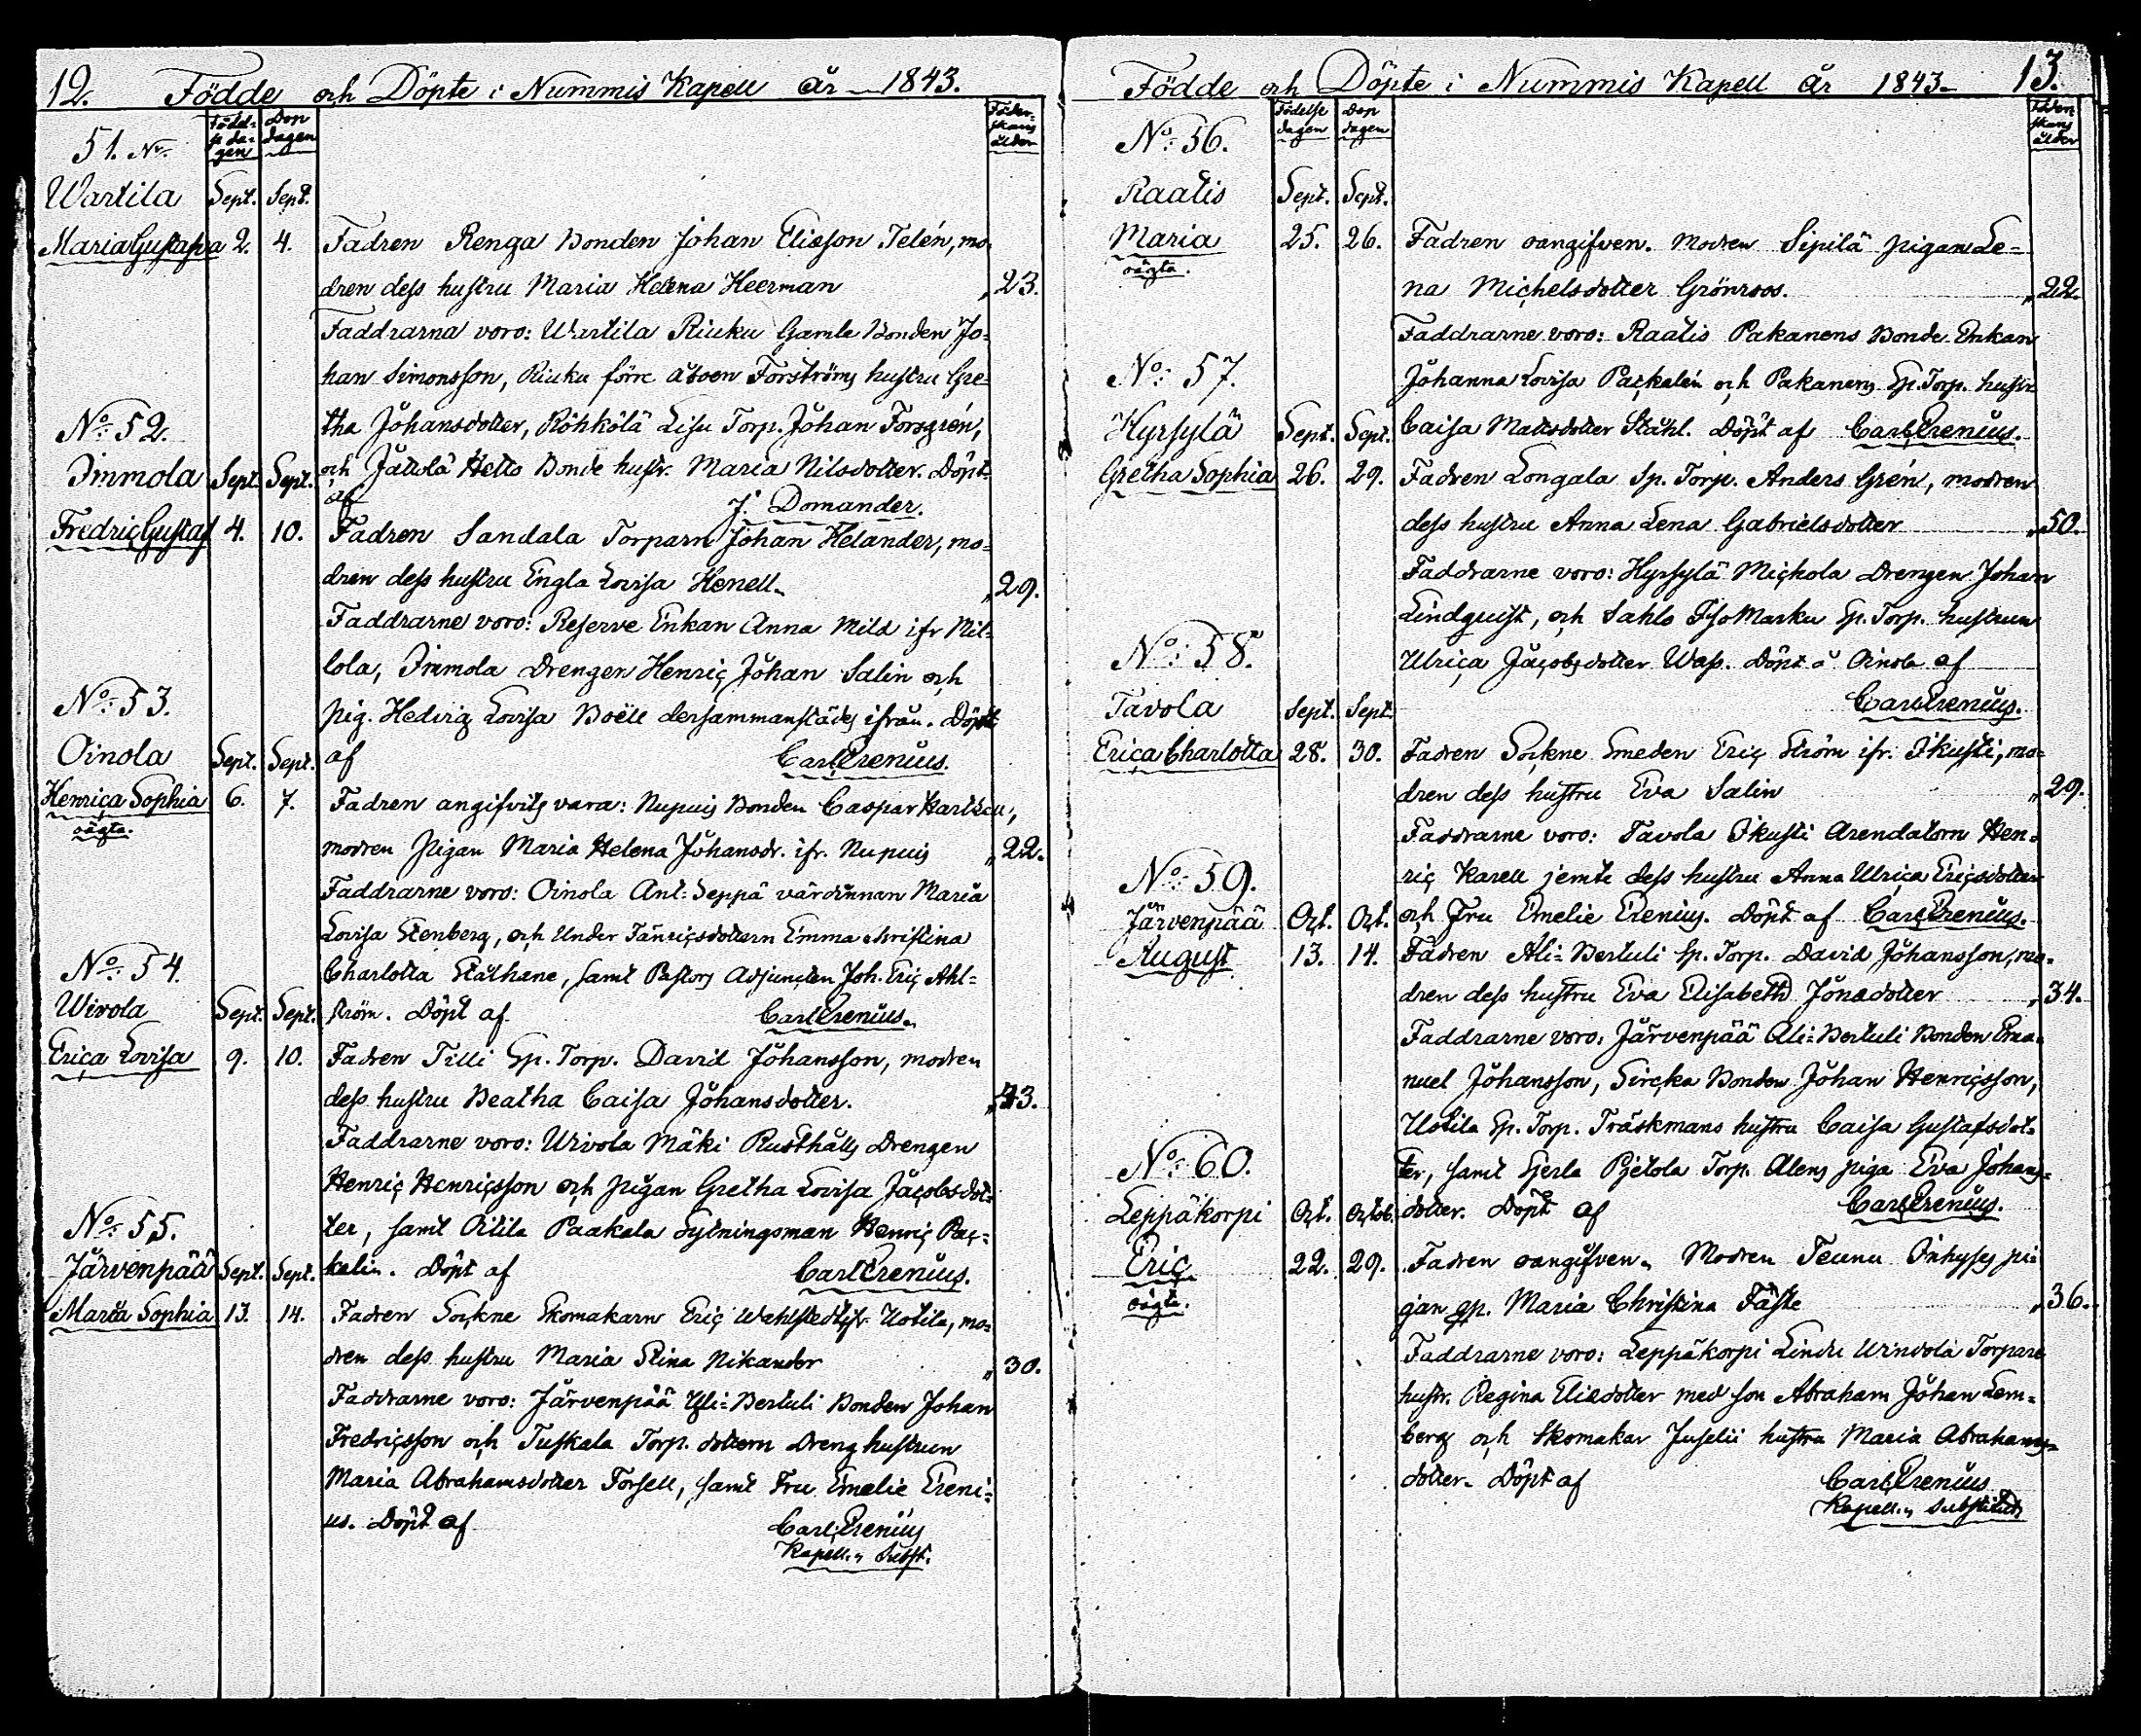 12. Födde och Döpte i Nummis Kapell år 1843.
Födel-
se da-
gen
Dop
dagen
Föder-
skans
ålder
51. Nr.
Wartila Sept. Sept.
Maria Gustafva 2. 4. Fadren Renga Bonden Johan Eliasson Telén, mo-
dren dess hustru Maria Helena Heerman „23.
Faddrarna voro: Wartila Riuku Gamle Bonden Jo-
han Simonsson, Riuku förre åboen Forströms hustru Gre-
No: 52. tha Johansdotter, Röhkölä Lisu Torp. Johan Forsgrén,
Immola Sept. Sept. och Jättölä Hetto Bonde hustr. Maria Nilsdotter. Döpt
af J. Domander.
Fredric Gustaf 4. 10. Fadren Sandala Torparn Johan Helander, mo-
dren dess hustru Engla Lovisa Henell. „29.
Faddrarne voro: Reserve Enkan Anna Mild ifr Mil-
lola, Immola Drengen Henric Johan Salin och
No: 53. pig. Hedvig Lovisa Boëll dersammanstädes ifrån. Döpt
Oinola Sept. Sept. af Carl Erenius.
Henrica Sophia 6. 7. Fadren angifvits vara: Nupuis Bonden Caspar
oägta.
modren Pigan Maria Helena Johansdr. ifr. Nupuis „22.
Faddrarne voro: Oinola Ant: Seppä värdinnan Maria
Lovisa Stenberg, och Under Jägtmästarn Emma Christina
No: 54. Charlotta Ståthane, samt Pastors Adjuncten Joh. Eric Ahl-
Wivola Sept. Sept. ström. Döpt af Carl Erenius.
Erica Lovisa 9. 10. Fadren Tilli Sp. Torp. David Johansson, modren
dess hustru Beatha Caisa Johansdotter. „43.
Faddrarne voro: Wivola Mäki Rusthålls Drengen
Henric Henricsson och pigan Gretha Lovisa Jacobsdot-
No: 55. ter, samt Oitila Paakala Sytningsman Henric Pac-
Järvenpää Sept. Sept. kalin. Döpt af Carl Erenius.
Maria Sophia 13. 14. Fadren Sockne Skomakarn Eric Wahlstedt ifr. Uotila, mo-
dren dess hustru Maria Stina Nikander „30.
Faddrarne voro: Järvenpää Yli-Bertuli Bonden Johan
Fredricsson och Tuskala Torp. dottern Dreng hustrun
Maria Abrahamsdotter Forsell, samt Fru Emelie Ereni-
us. Döpt af Carl Erenius
Kapell. Subst.
Födde och Döpte i Nummis Kapell år 1843. 13.
Födelse
dagen
Dop
dagen
Föder-
skans
ålder
No: 56.
Raatis Sept. Sept.
Maria 25. 26. Fadren oangifven. Modren Sipilä pigan Le-
oägta.
na Michelsdotter Grönroos. „22.
Faddrarne voro: Raatis Pakanens Bonde Enkan
No: 57. Johanna Lovisa Packalén och Pakanens Sp. Torp. hustr
Hyrsylä Sept. Sept. Caisa Mattsdotter Ståhl. Döpt af Carl Erenius.
Gretha Sophia 26. 29. Fadren Longala Sp. Torp. Anders Grén, modren
dess hustru Anna Lena Gabrielsdotter „50.
Faddrarne voro: Hyrsylä Michola Drengen Johan
Lindquist, och Sahlo Iso Marku Sp. Torp. hustrun
No: 58. Ulrica Jacobsdotter Wass. Döpt å Oinola af
Tavola Sept. Sept. Carl Erenius.
Erica Charlotta 28. 30. Fadren Sockne Smeden Eric Ström ifr. Ikusti, mo-
dren dess hustru Eva Salin „29.
Faddrarne voro: Tavola Ikusti Arendatorn Hen-
No: 59. ric Karell jemte dess hustru Anna Ulrica Ericsdotter
Järvenpää Oct. Oct. och Fru Emelie Erenius. Döpt af Carl Erenius.
August 13. 14. Fadren Ali-Bertuli Sp. Torp. David Johansson, mo-
dren dess hustru Eva Elisabeth Jonasdotter „34.
Faddrarne voro, Järvenpää Ali-Bertuli Bonden Ema-
nuel Johansson, Sircka Bonden Johan Henricsson,
Uotila Sp. Torp. Träskmans hustru Caisa Gustafsdot-
No: 60. ter, samt Gerla Pietola Torp. Alens piga Eva Johans-
Leppäkorpi Oct. Octob. dotter. Döpt af Carl Erenius.
Eric 22. 29. Fadren oangifven. Modren Teunu Inhyses pi-
oägta.
gan Maria Christina Fäste „36.
Faddrarne voro: Leppäkorpi Lindu Torpare
hustr. Regina Eliedotter med son Abraham Johan Lem-
berg och Skomakar Juselii hustru Maria Abrahams-
dotter. Döpt af Carl Erenius
Kapell. Substitut